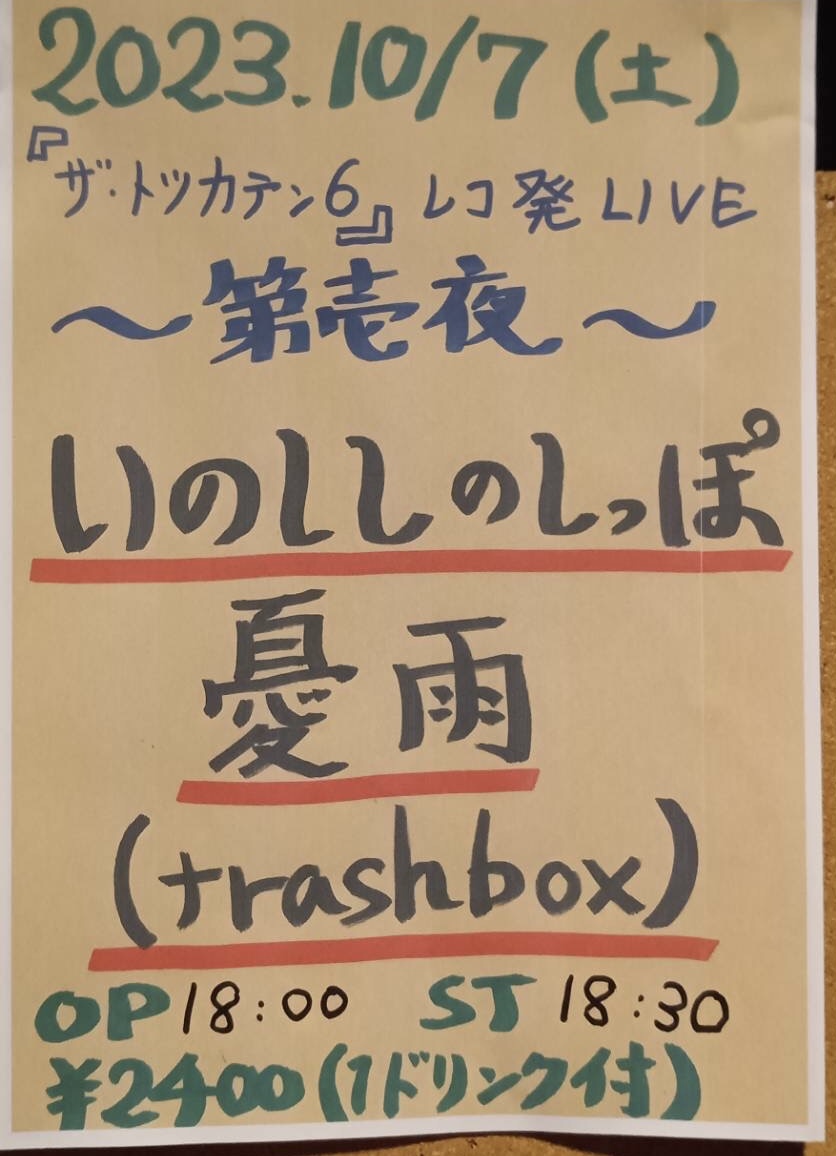 2023.10/7(土)
『ザ・トツカテン6』レコ発LIVE
～第壱夜～
いのししのしっぽ
憂雨
(trashbox)
OP18:00 ST 18:30
¥2400(1ドリンク付)